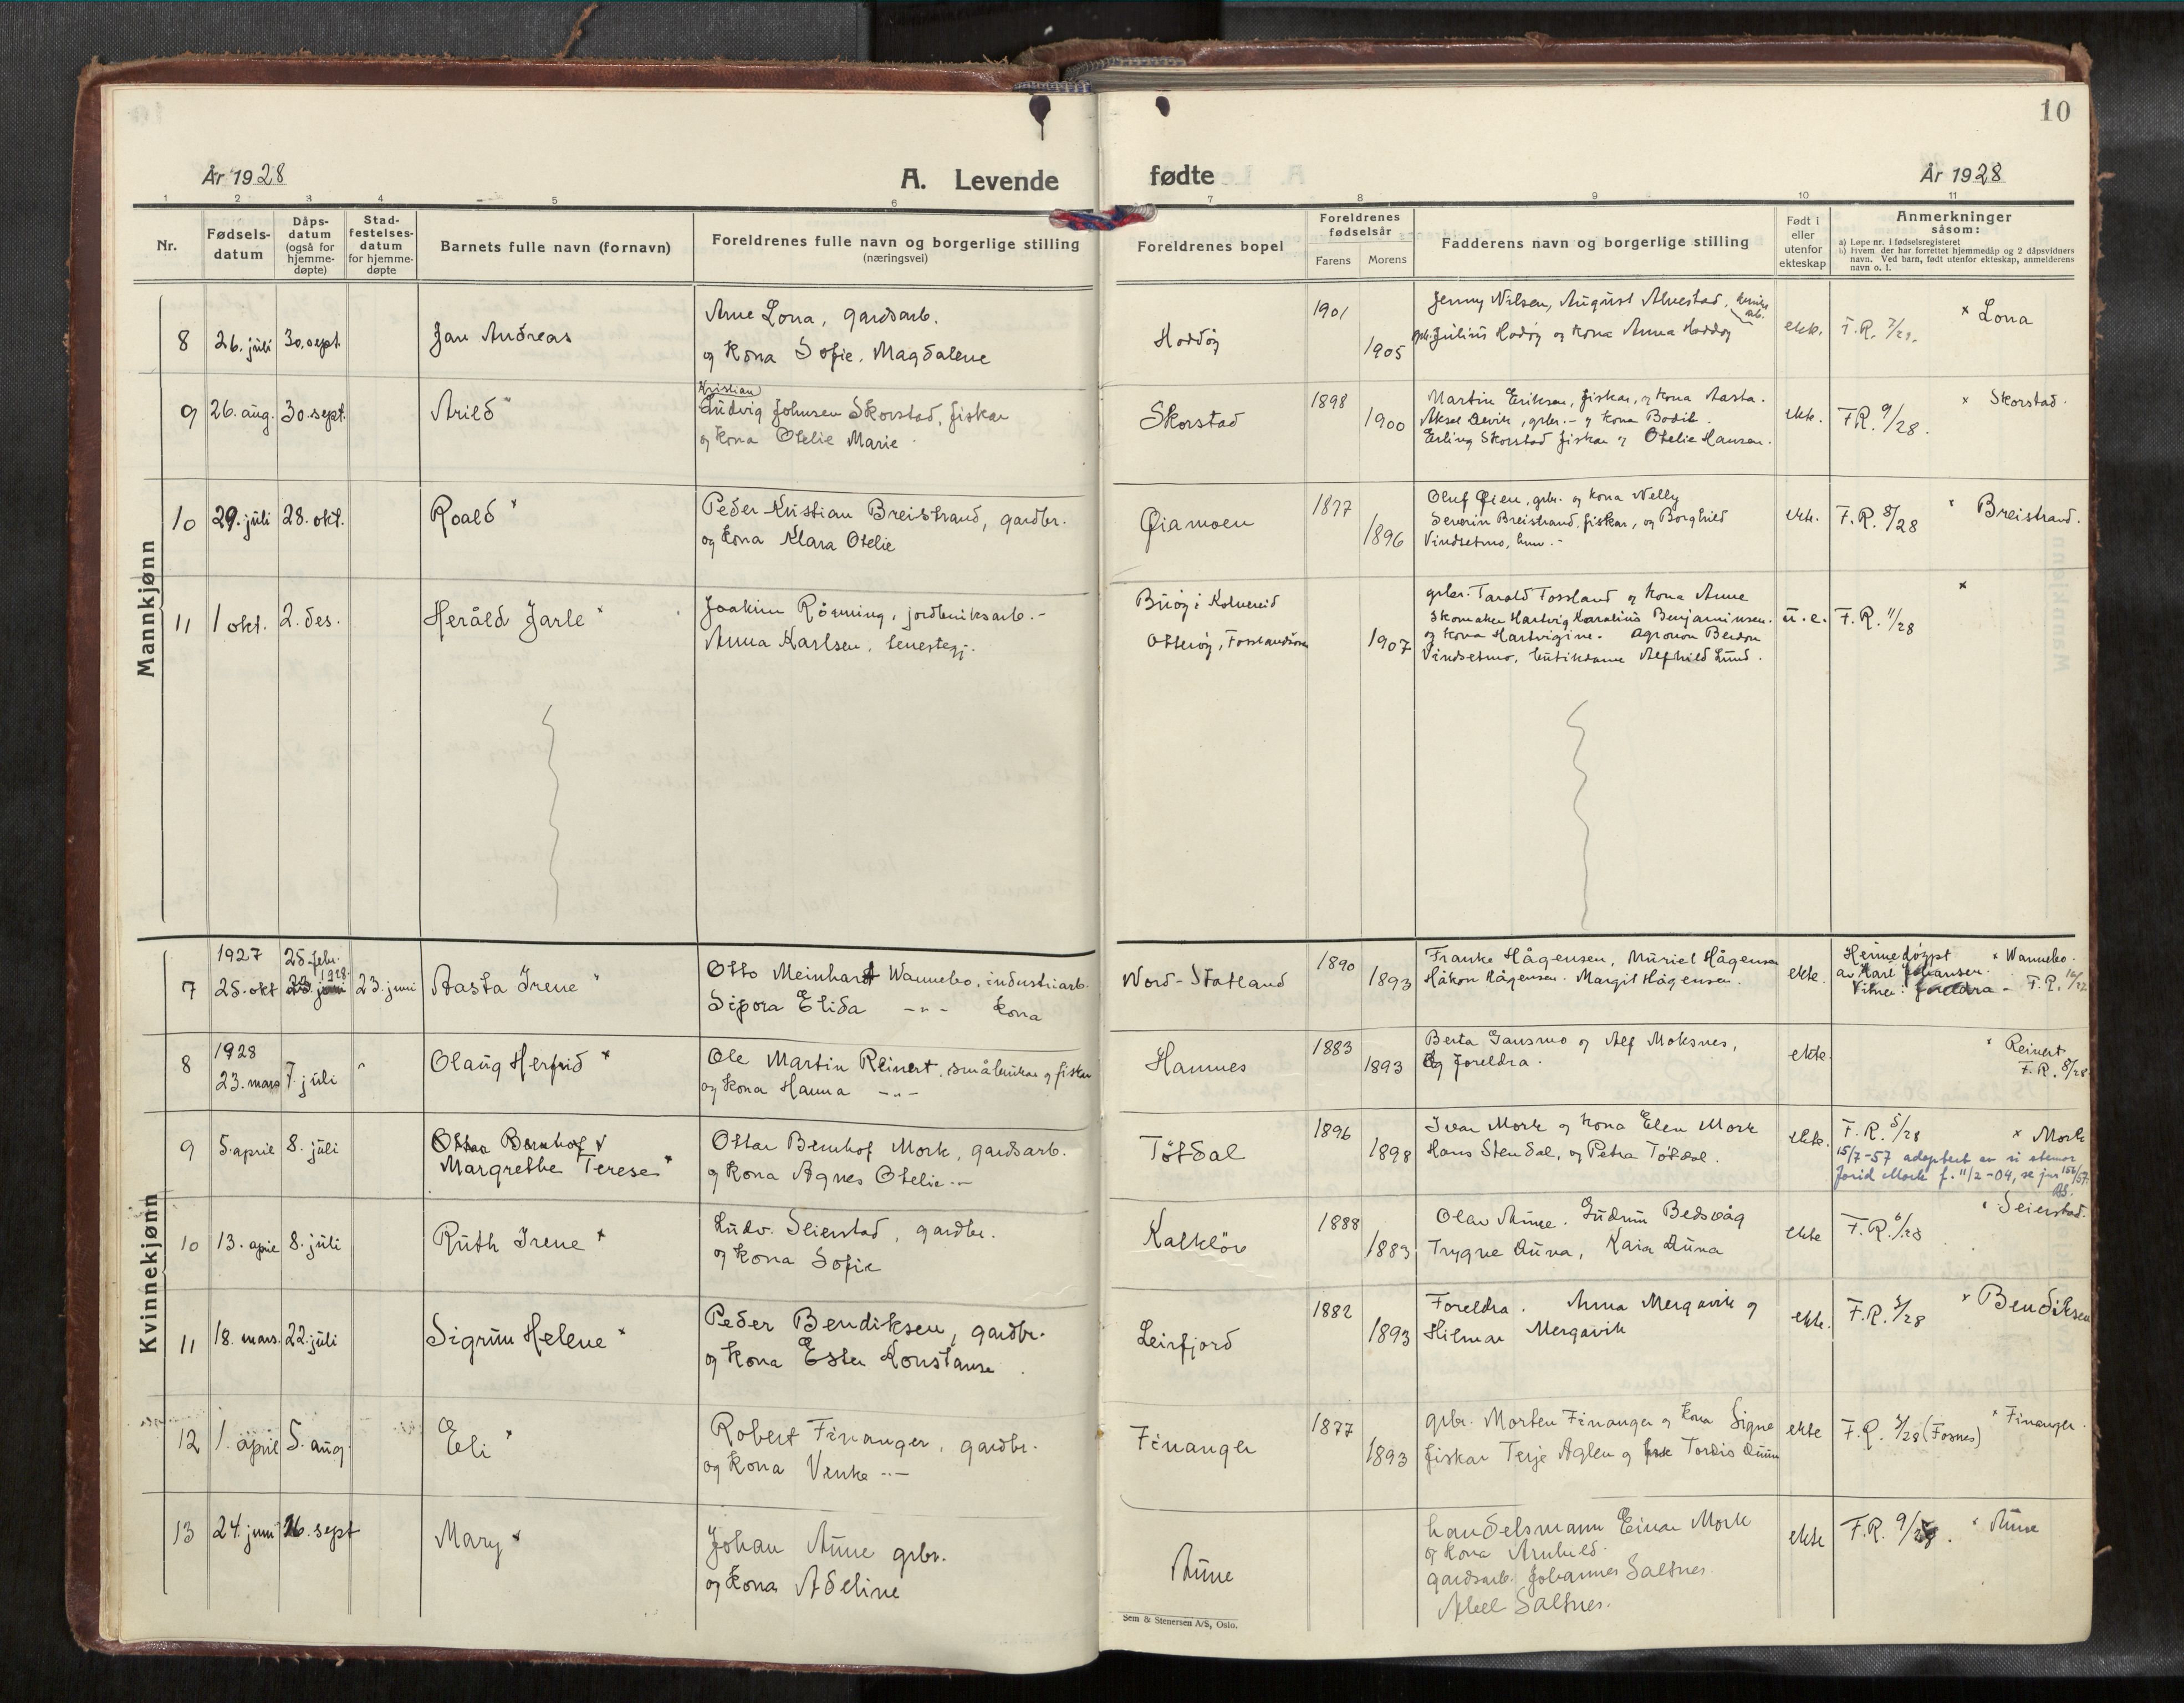 10
År 1928
A. Levende fødte
År 1928
1 2 3 4 5 6 7 8 9 10 11
Nr.
Fødsels-
datum
Dåps-
datum
(også for
hjemme-
døpte)
Stad-
festelses-
datum
for hjemme-
døpte
Barnets fulle navn (fornavn)
Foreldrenes fulle navn og borgerlige stilling
(næringsvei)
Foreldrenes bopel
Foreldrenes
fødselsår
Farens Morens
Fadderens navn og borgerlige stilling
Født i
eller
utenfor
ekteskap
Anmerkninger
såsom:
a) Løpe nr. i fødselsregisteret
b) Hvem der har forrettet hjemmedåp og 2 dåpsvidners
navn. Ved barn, født utenfor ekteskap, anmelderens
navn o. l.
Mannkjønn
8 26. juli 30. sept Jan Andreas
Arne Lona, gardsarb.
og Kona Sofie Magdalene
Hoddøy
1901
1905
Jenny Nilsen, August Alvestad,
Julius Hodøy og Kona Anna Hoddøy
ekte.
F.R. 7/29.
× Lona
9 26. aug. 30. sept. Arild
Kristian
Ludvig Johnsen Skorstad, fiskar
og Kona Otelie Marie
Skorstad
1898
1900
Martin Eriksen, fiskar, og Kona Aasta.
Aksel Devik, grbr. - og Kona Bodil.
Erling Skorstad fiskar og Otelie Hansen.
ekte.
F.R. 9/28.
× Skorstad.
10 29. juli 28. okt. Roald ×
Peder Kristian Breistrand, gardbr.
og Kona Klara Otelie
Øiamoen
1877
1896
Oluf Øien, grbr. og Kona Nelly
Severin Breistrand, fiskar, og Borghild
Vindsetmo,
ekte.
F.R. 8/28
Breistrand.
11 1 okt. 2. des. Heråld Jarle ×
Joakim Rönning, jordbruksarb. -
Anna Karlsen, tenestegj.
Buøy i Kolvereid
Otterøy, Fosslandsosen
1907
grbr. Tarald Fossland og Kona Anne
Skomaker Hartvig Karolius Benjaminsen.
og Kona Hartvigine. Agronom Berdon
Vindsetmo, butikdame Alfhild Lund.
u.e.
F.R. 11/28
×
Kvinnekjønn
7
1927
25. okt
25. febr.
1928
23. juni
23. juni
Aasta Irene
Otto Meinhardt Wannebo, industriarb.
Sipora Elida -"- Kona
Nord-Statland
1890
1893
Franke Hågensen, Muriel Hågensen
Håkon Hågensen. Margit Hågensen.
ekte.
Heimedøypt × Wannebo.
av Karl Johansen.
Vitne: foreldra - F.R. 12/27
8
1928
23. mars 7. juli Olaug Herfrid ×
Ole Martin Reinert, småbrukar og fiskar
og Kona Hanna -"-
Hannes
1883
1893
Berta Gansmo og Alf Moksnes,
og foreldra.
ekte.
× Reinert
F.R. 8/28
9 5. april 8. juli
Margrethe Terese ×
Ottar Bernhof Mork, gardsarb.
og Kona Agnes Otelie -"-
Tøtdal
1896
1898
Ivar Mork og Kona Elen Mork
Hans Stendal, og Petra Tøtdal.
ekte.
F.R. 5/28 × Mork
15/7-57 adoptert av si stemor
Jorid Mork f. 11/2-04, se jnr
10 13. april 8. juli Ruth Irene ×
Ludv. Seierstad, gardbr.
og Kona Sofie
Kalkløv
1888
1883
Olav Aune. Gudrun Bedsvåg
Trygve Duna, Kaia Duna
ekte
F.R. 6/28
Seierstad.
11 18. mars. 22. juli Sigrun Helene ×
Peder Bendiksen, gardbr.
og Kona Ester Konstanse.
Leirfjord
1882
1893
Foreldra. Anna Merqavik og
Hilmar Merqavik
ekte.
F.R. 5/28
× Bendiksen
12 1. april 5. aug. Eli ×
Robert Finanger, gardbr.
og Kona Venke -"-
Finanger
1877
1893
grbr. Morten Finanger og Kona Signe
fiskar Terje Aglen og frk Tordis Duun
ekte
F.R. 5/28 (Fosnes)
× Finanger.
13 24. juni 16. sept Mary ×
Johan Aune grbr.
og Kona Adeline
Aune
handelsmann Einar Mork
og Kona Arnhild.
gardsarb. Johannes Saltnes.
Abel Saltnes.
ekte
F.R. 9/28.
× Aune
Sem & Stenersen A/S, Oslo.